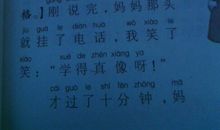 格】刚说完，妈妈那头
jiù guà le diàn huà wǒ xiào le
就挂了电话，我笑了
xiào xué de zhēn xiàng ya
笑：“学得真像呀！”
cái guò le shí fēn zhōng mā
才过了十分钟，妈